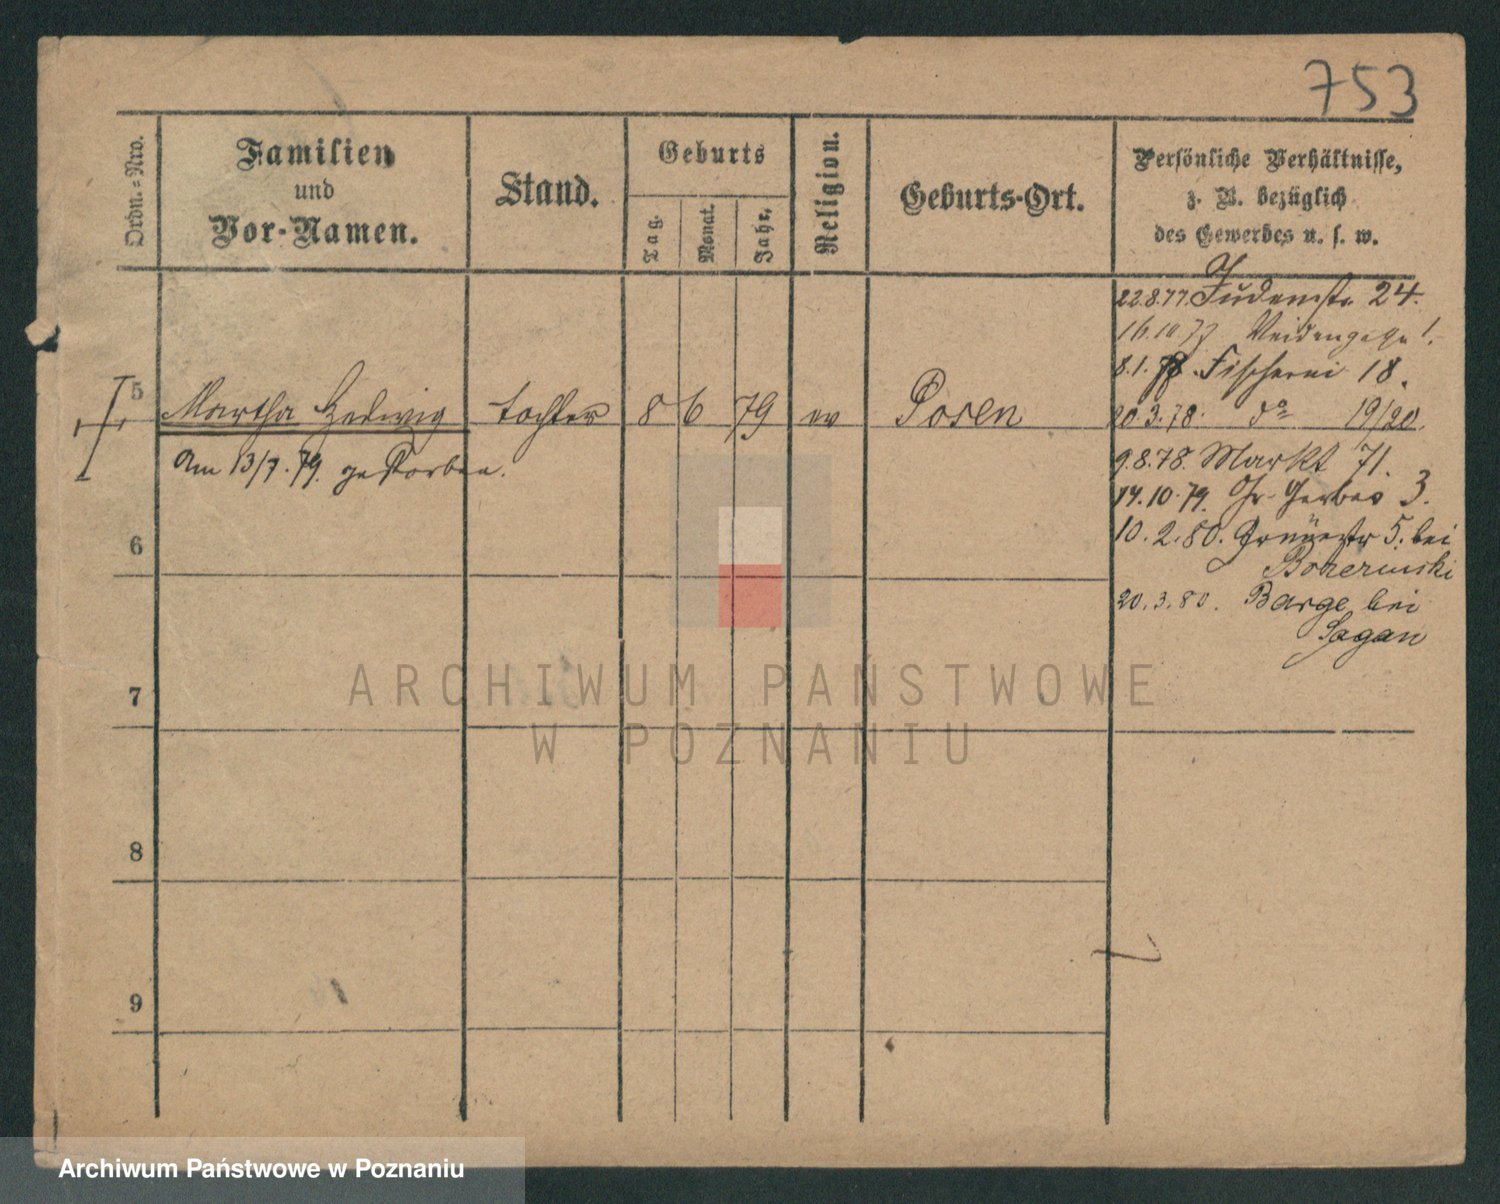 753
Ordn.=Nro.
Familien
und
Vor-Namen.
Stand.
Geburts
Tag.
Monat.
Jahr.
Religion.
Geburts-Ort.
Persönliche Verhältnisse,
z. B. bezüglich
des Gewerbes u. s. w.
22.8.77. Judenstr. 24.
16.10.77
8.1.78. Fischerei 18.
5 Martha Hedwig tochter 8 6 79 ev Posen
20.3.78. do 19/20.
am 13/7.79. gestorben.
9.8.78. Markt 71.
14.10.79. Gr. Gerber 3.
6
10.2.80. 5. bei
20.3.80. Barge bei
Sagan
7
8
9
ARCHIWUM PAŃSTWOWE
W POZNANIU
Archiwum Państwowe w Poznaniu